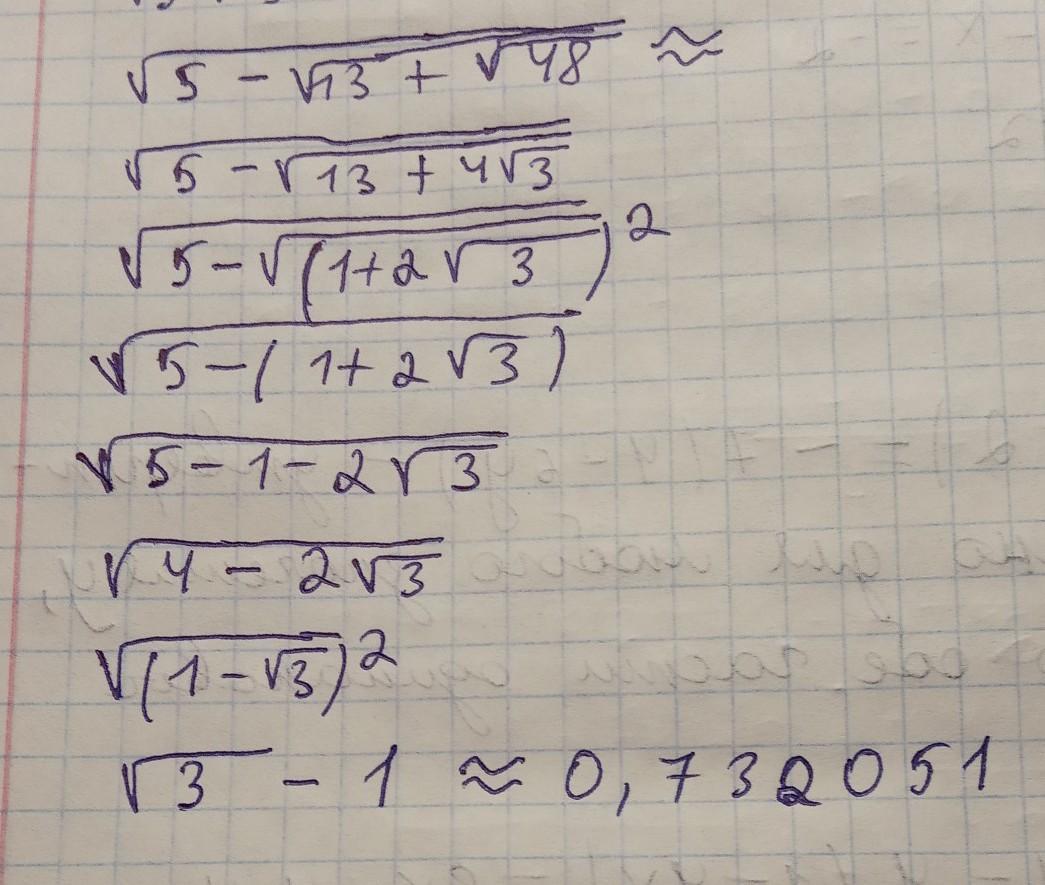 √5 - √13 + √48 ≈
√5 - √13 + 4√3
√5 - √(1+2√3)²
√5 - (1 + 2√3)
√5 - 1 - 2√3
√4 - 2√3
√(1-√3)²
√3 - 1 ≈ 0,732051